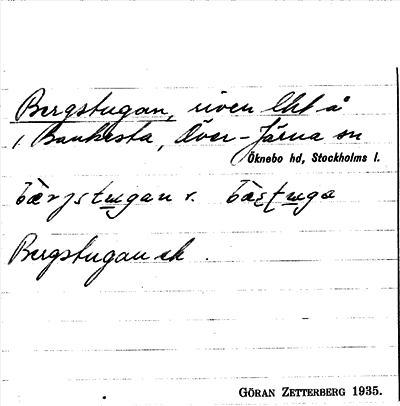 Bergstugan, även lht å
i Bankesta, Över-Järna sn
Öknebo hd, Stockholms l.
Bergstugan ek
GÖRAN ZETTERBERG 1935.